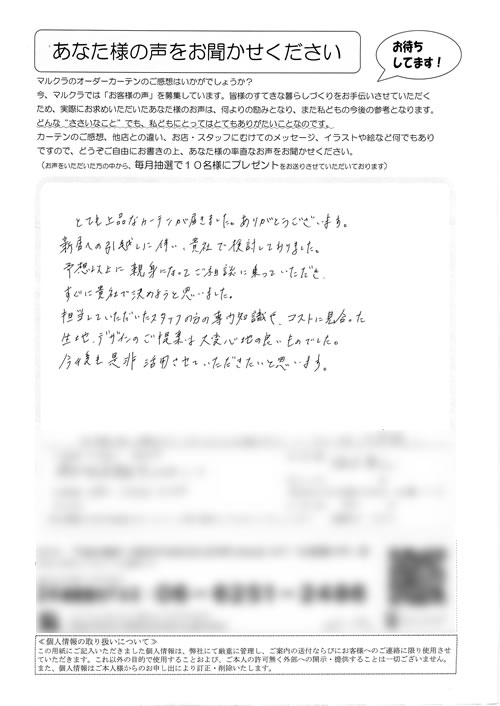 あなた様の声をお聞かせください
お待ち
してます！
マルクラのオーダーカーテンのご感想はいかがでしょうか？
今、マルクラでは「お客様の声」を募集しています。皆様のすてきな暮らしづくりをお手伝いさせていただく
ため、実際にお求めいただいたあなた様のお声は、何よりの励みとなり、また私どもの今後の参考となります。
どんな“ささいなこと”でも、私どもにとってはとてもありがたいことなのです。
カーテンのご感想、他店との違い、お店・スタッフにむけてのメッセージ、イラストや絵など何でもあり
ですので、どうぞご自由にお書きの上、あなた様の率直なお声をお聞かせください。
（お声をいただいた方の中から、毎月抽選で１０名様にプレゼントをお送りさせていただいております）
とても上品なカーテンが届きました。ありがとうございます。
新居への引越しに伴い、貴社で検討しておりました。
予想以上に親身になってご相談に乗っていただき、
すぐに貴社で決めようと思いました。
担当していただいたスタッフの方の専門知識や、コストに見合った
生地、デザインのご提案は大変心地の良いものでした。
今後も是非活用させていただきたいと思います。
06-6251-2486
≪個人情報の取り扱いについて≫
この用紙にご記入いただきました個人情報は、弊社にて厳重に管理し、ご案内の送付ならびにお客様へのご連絡に限り使用させ
ていただきます。これ以外の目的で使用することおよび、ご本人の許可無く外部への開示・提供することは一切ございません。
また、個人情報はご本人様からのお申し出により訂正・削除いたします。